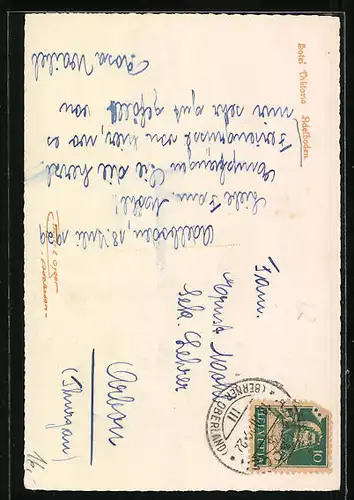 Hotel Viktoria Adelboden.
Adelboden, 18 Juli 1929
Liebe Fam. Möhl!
Empfangen Sie die herzl.
Feriengrüsse von hier, wo es
mir sehr gut gefällt
von
Rosa Waibel
Fam.
Ernst Möhl
Sek. Lehrer
Arbon
(Thurgau)
(BERNER OBERLAND)
III
HELVETIA
10
16.-